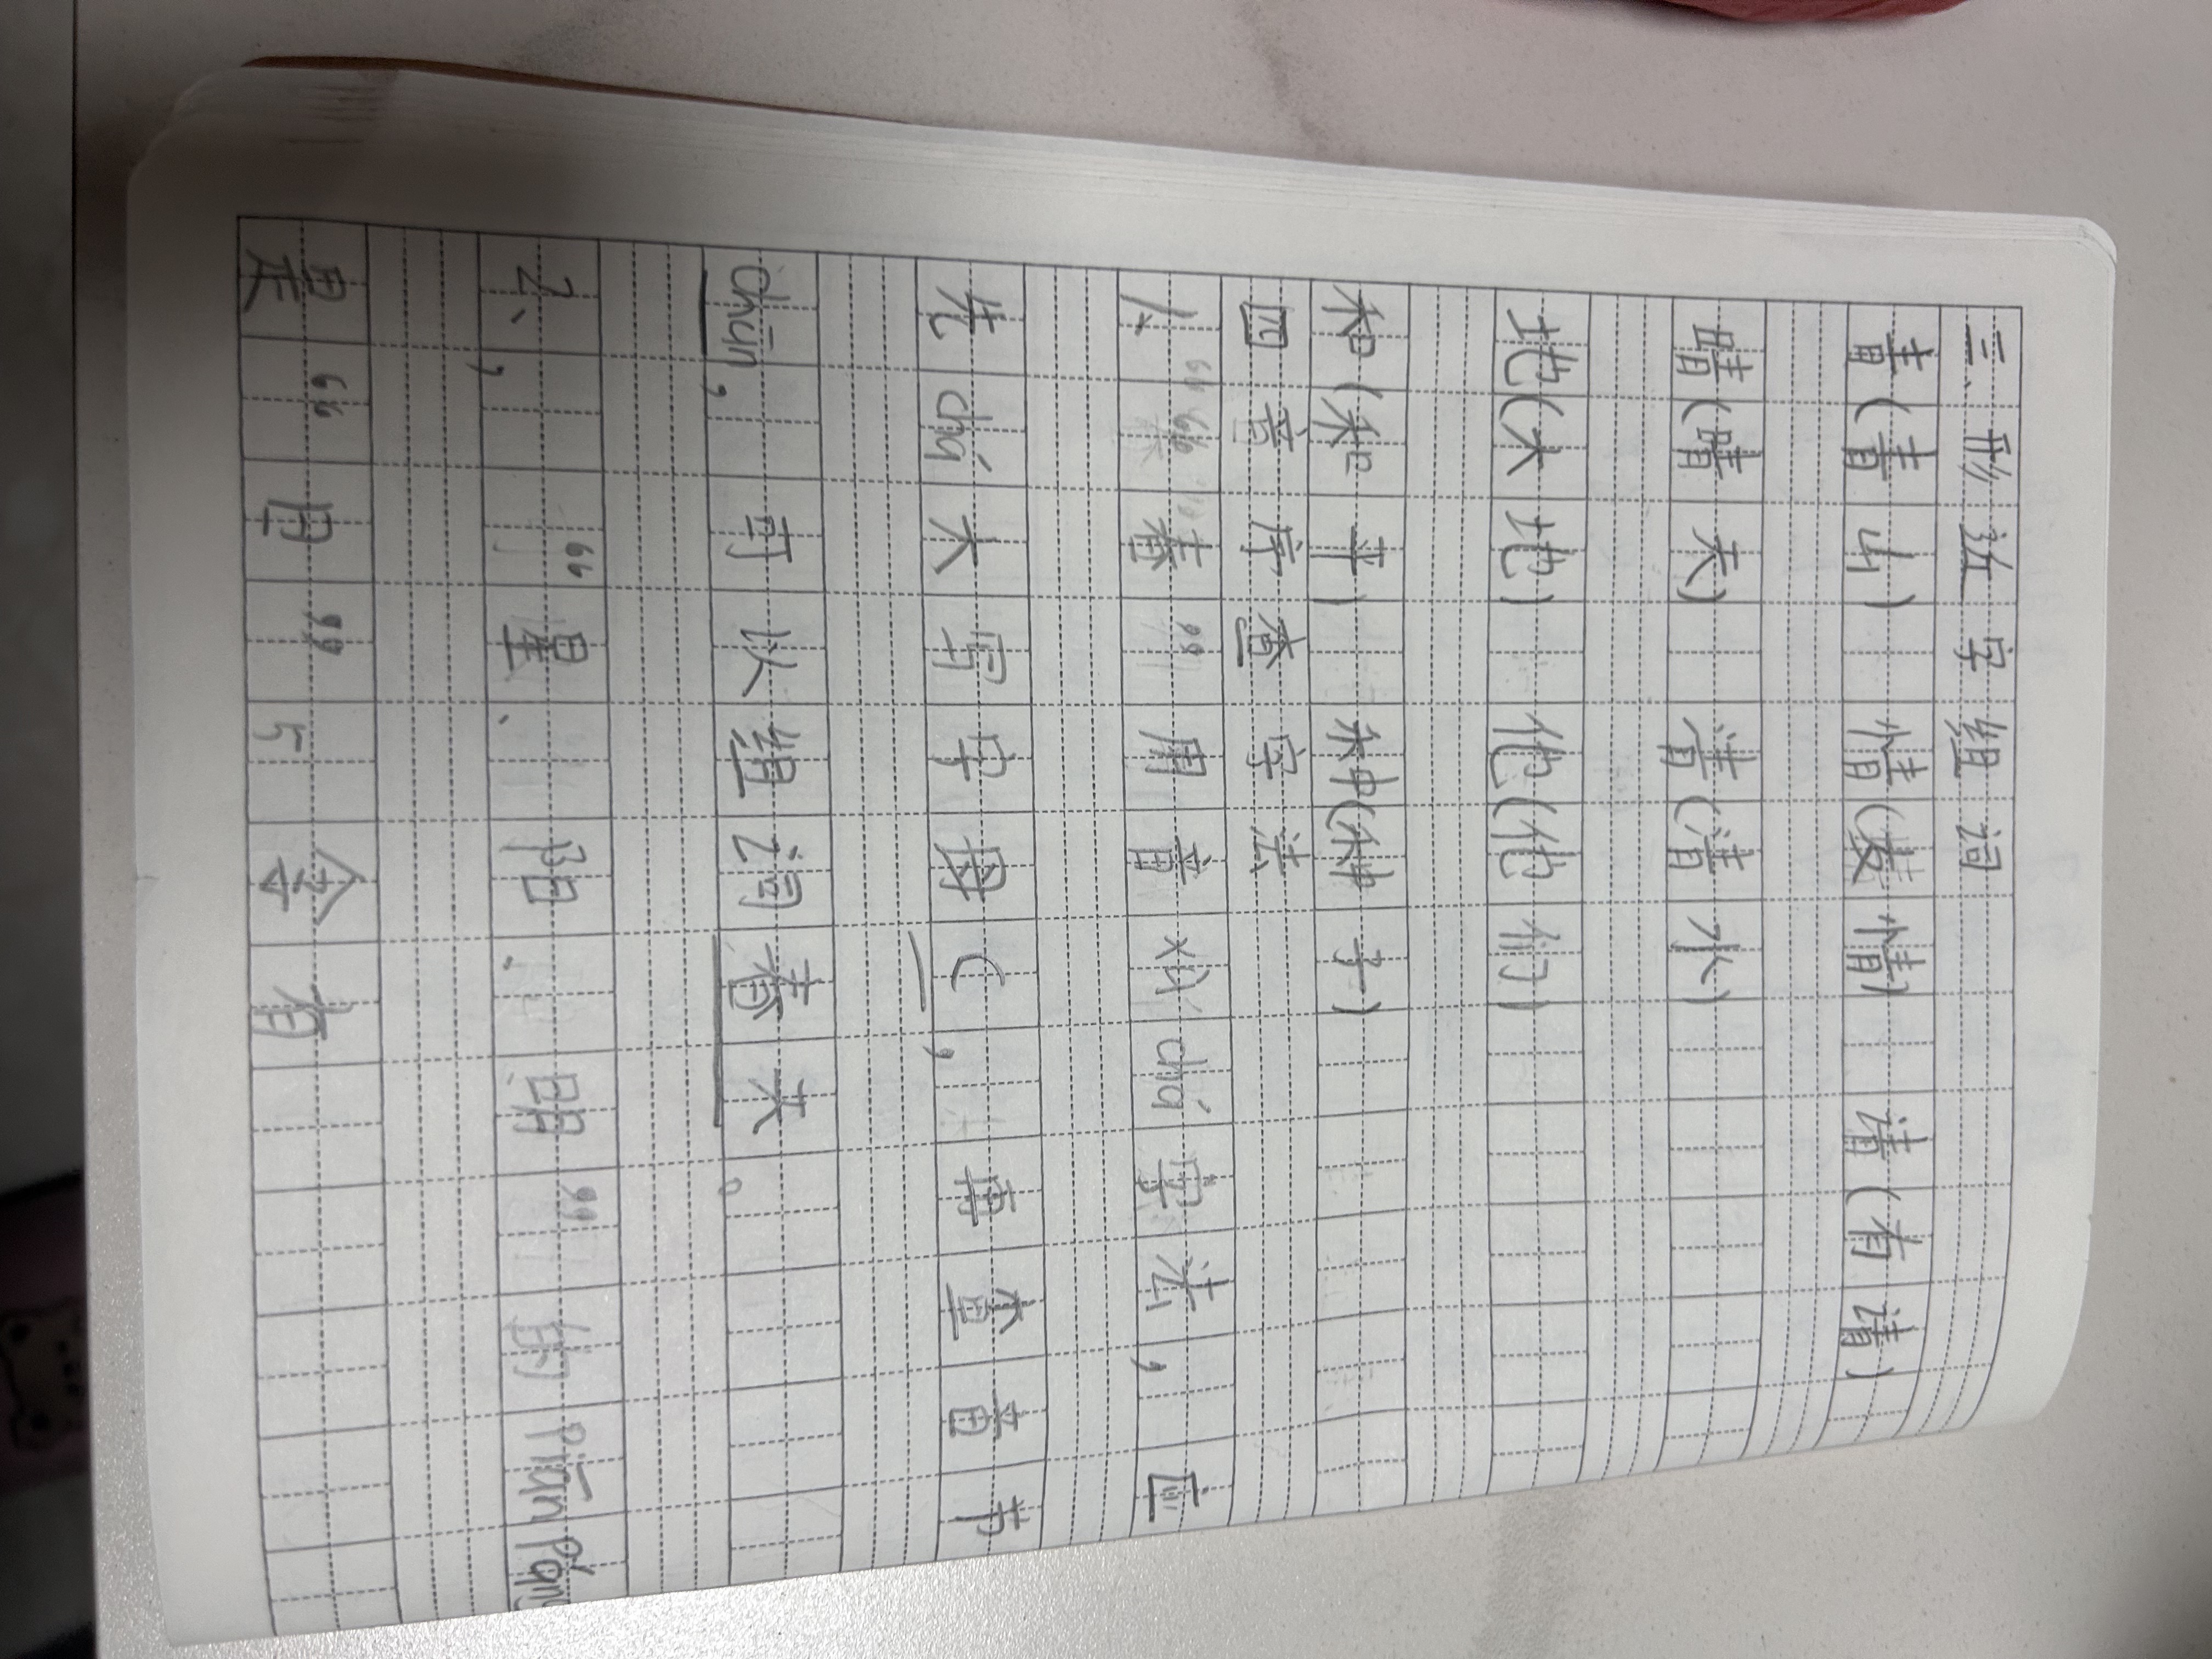 三、形近字组词
青(青山) 情(友情) 请(有请)
晴(晴天) 清(清水)
地(大地) 他(他们)
和(和平) 种(种子)
四、音序查字法
1、“春”用音xù chá字法,应
先chá大写字母C,再查音节
chūn,可以组词春天。
2、“星、阳、明”的Piān Páng
是“日”与今有